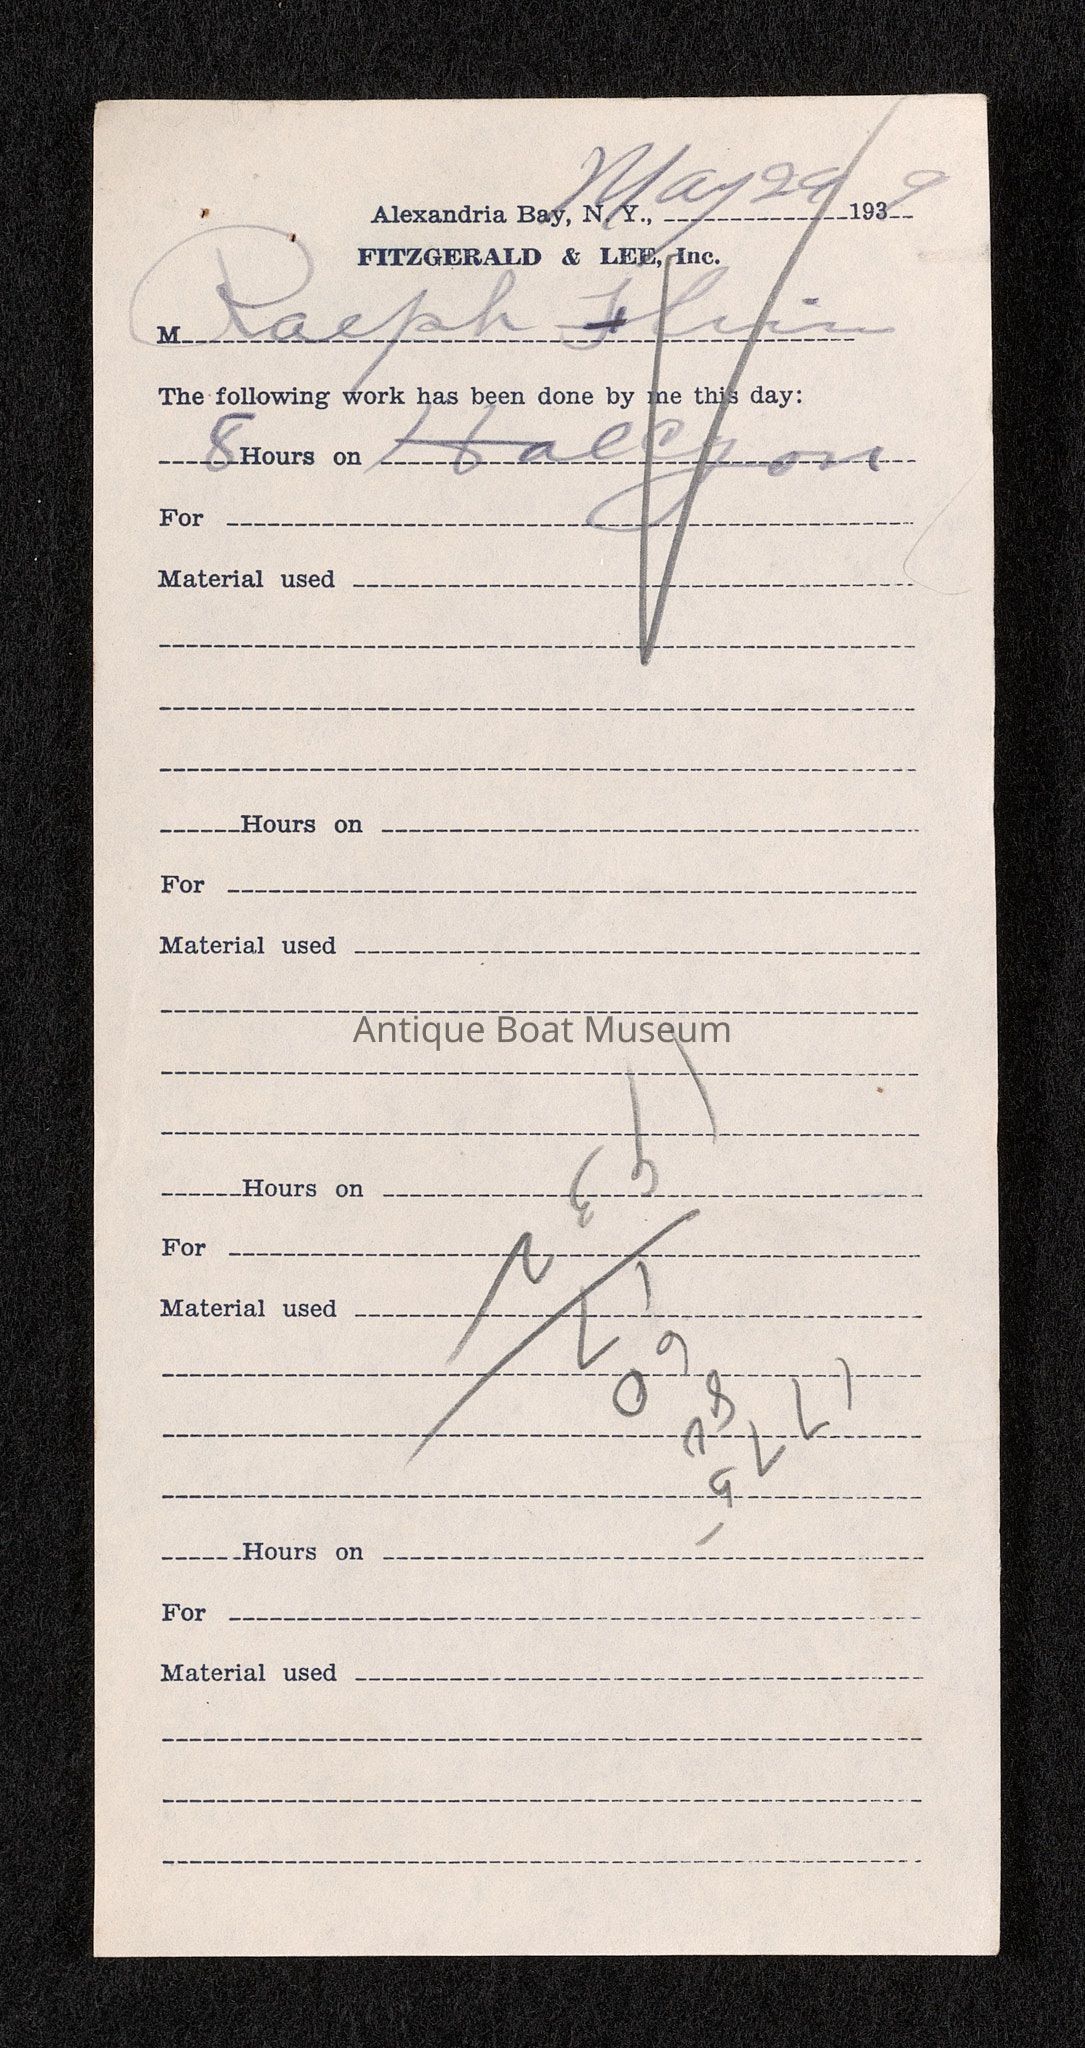 Alexandria Bay, N. Y., May 29 1939
FITZGERALD & LEE, Inc.
M Ralph
The following work has been done by me this day:
8 Hours on Halcyon
For
Material used
Hours on
For
Material used
Antique Boat Museum
Hours on
For
Material used
Hours on
For
Material used